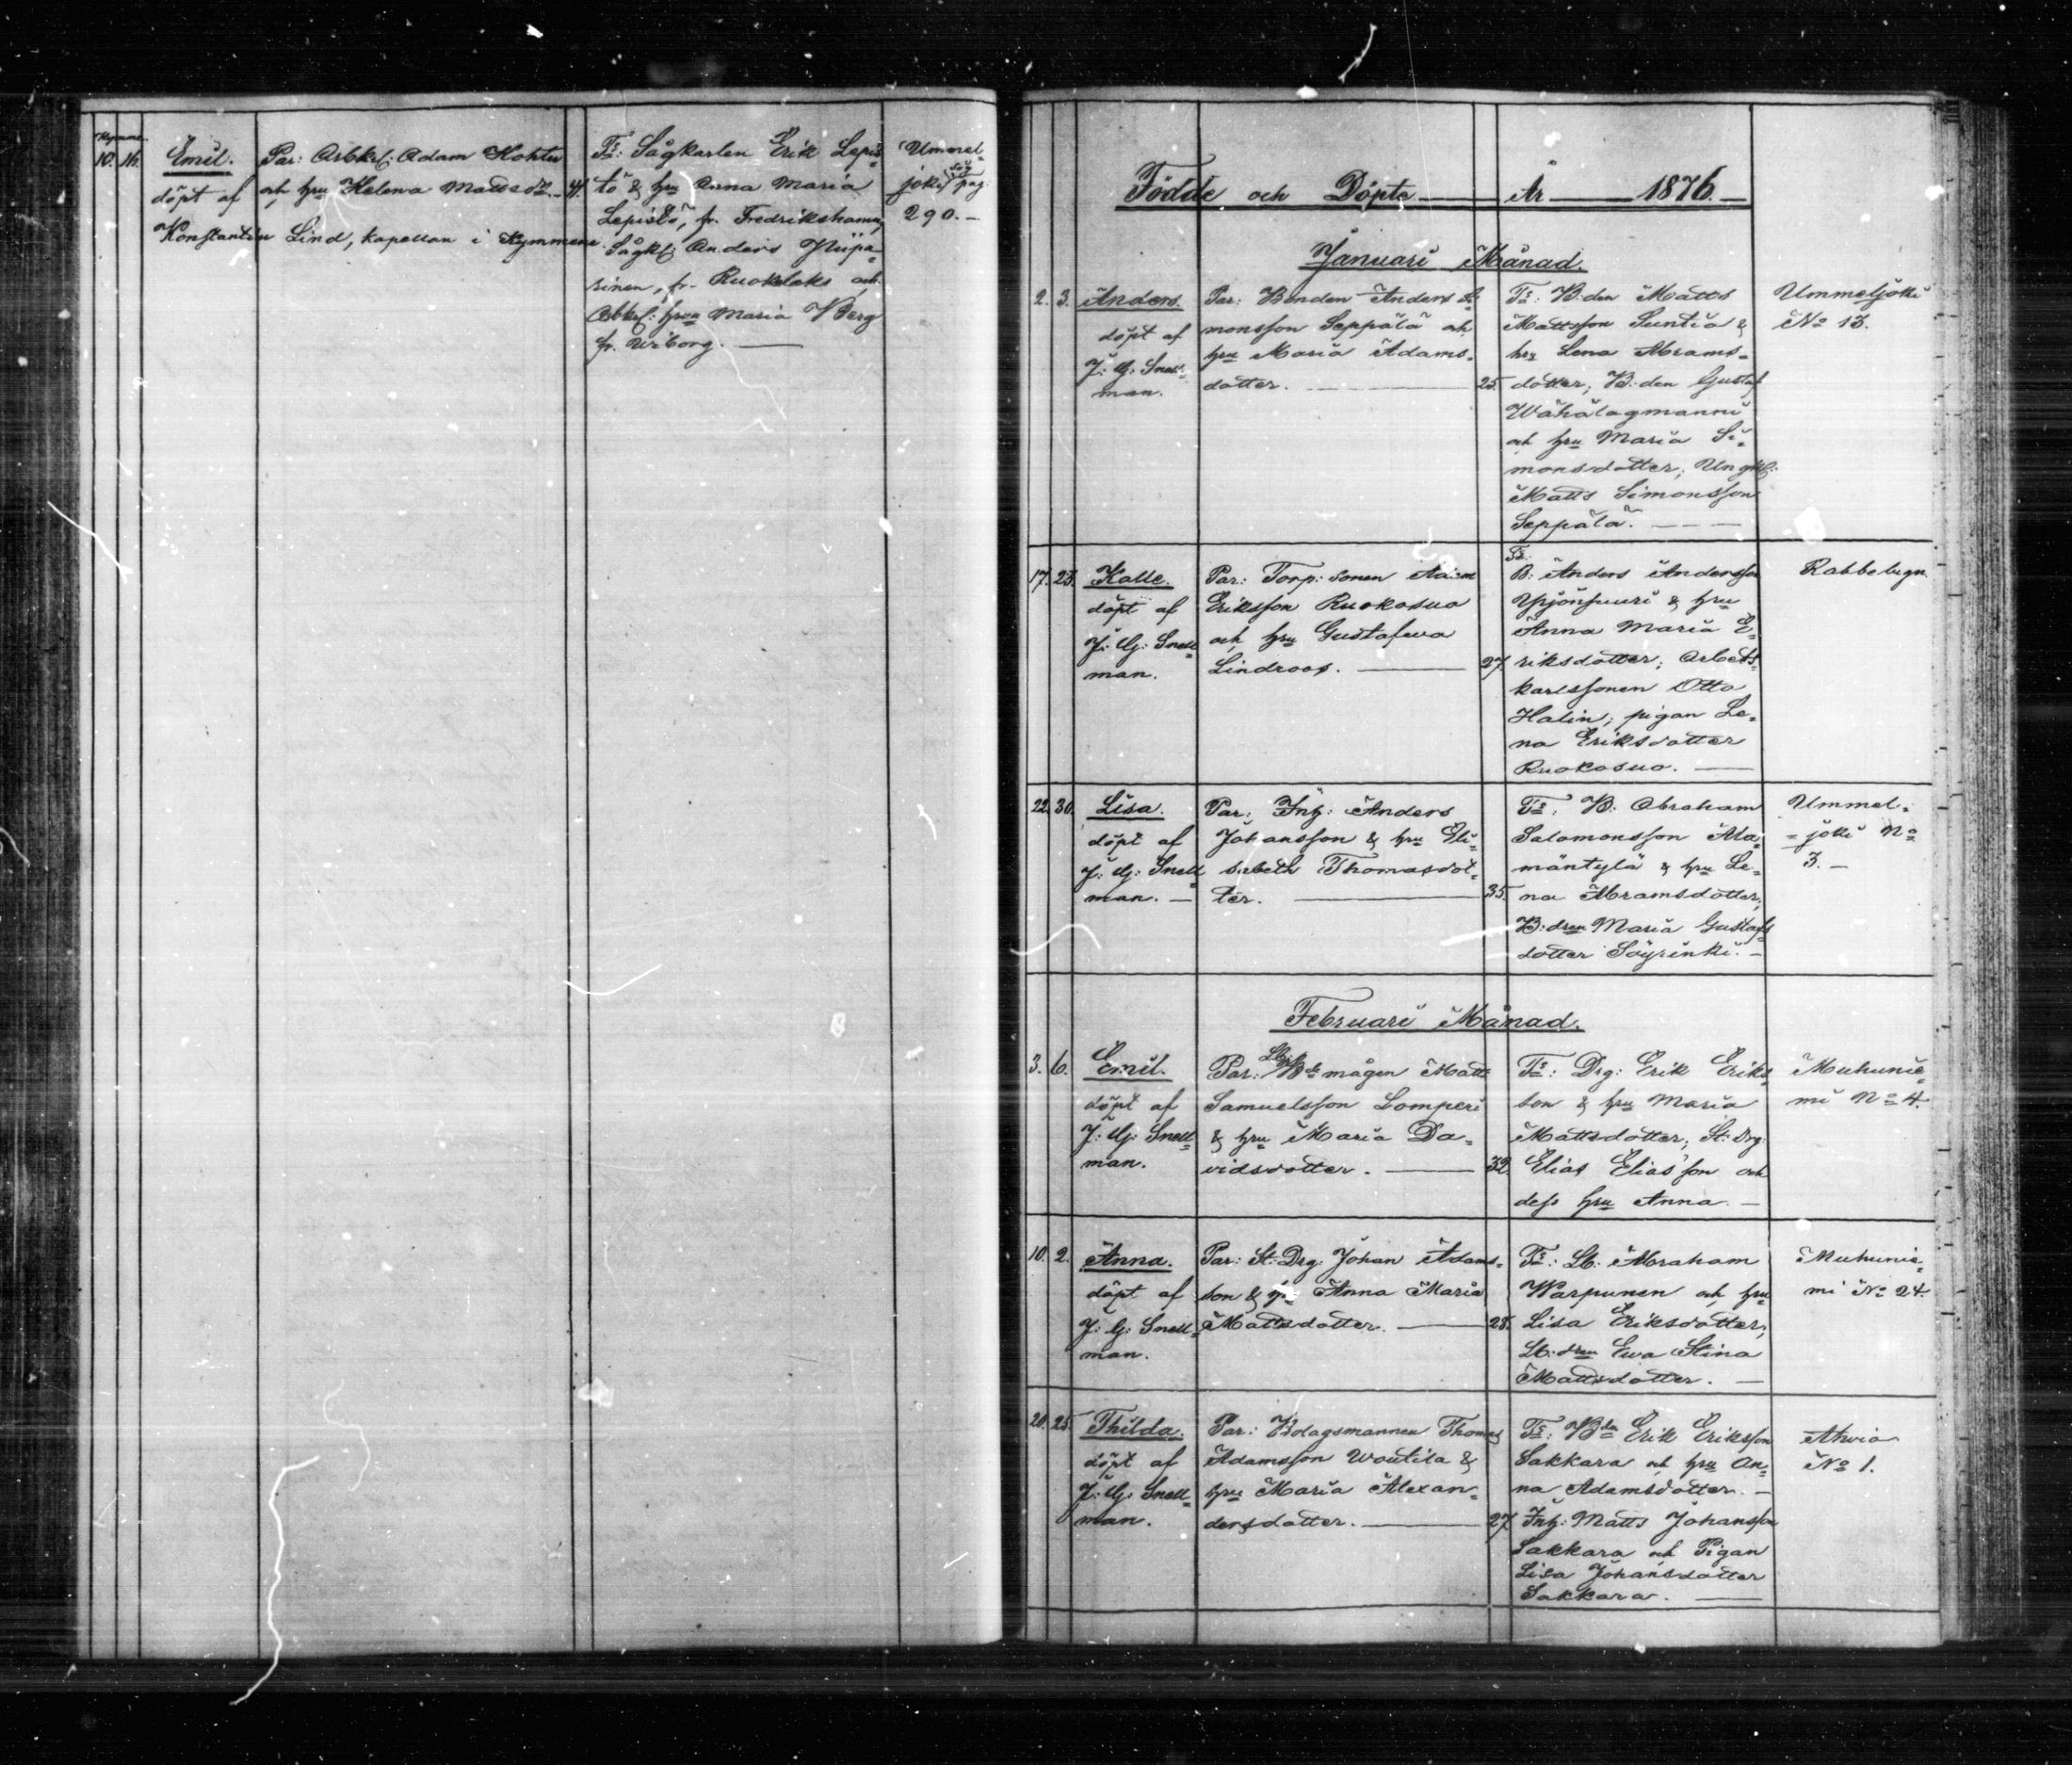 10. 16. Emil. Par: Arbkf: Adam Kohtu
döpt af och hru Helena Mattsdr. 41.
Konstantin Lind, kapellan i Kymmene.
Fr: Sågkarlen Erik Lepis=
tö & hru Anna Maria
Lepistö, fr. Fredrikshamn,
Sågkf: Anders
sinen, fr. Ruokolaks och
Arbkf: hrun Maria Berg
fr. Wiborg.
Ummel=
joki pag.
290.
Födde och Döpte År 1876.
Januari Månad.
2. 3. Anders.
döpt af
J: G: Snell=
man.
Par: Bonden Anders Si=
monsson Seppälä och
hru Maria Adams=
dotter. 25.
Fr: B:den Matts
Mattsson Suntia &
hru Lena Abrams=
dotter; B:den Gustaf
Wähälagmanni
och hru Maria Si=
monsdotter; Ungkf:
Matts Simonsson
Seppälä.
Ummeljoki
No 13.
17. 23. Kalle.
döpt af
J: G: Snell=
man.
Par: Torp:sonen Adam
Eriksson Ruokosuo
och hru Gustafwa
Lindroos. 27.
Fr:
B: Anders Andersson
& hru
Anna Maria E=
riksdotter; Arbets=
karlssonen Otto
Halin; pigan Le=
na Eriksdotter
Ruokosuo.
Rabbelugn.
22. 30. Lisa.
döpt af
J: G: Snell=
man.
Par: Inh: Anders
Johansson & hru Eli=
sabeth Thomasdot=
ter. 35.
Fr: B: Abraham
Salomonsson Ala=
mäntylä & hru Le=
na Abramsdotter,
B:dren Maria Gustafs
dotter Söyrinki.
Ummel=
=joki No
3.
Februari Månad.
3. 6. Emil.
döpt af
J: G: Snell=
man.
Par: mågen Matts
Samuelsson Lomperi
& hru Maria Da=
vidsdotter. 32
Fr: Drg: Erik Eriks
son & hru Maria
Mattsdotter; St: Drg:
Elias Eliasson och
dess hru Anna.
Muhunie=
mi No 4.
10. 2. Anna.
döpt af
J: G: Snell=
man.
Par: St: Drg: Johan Adams=
son & hru Anna Maria
Mattsdotter. 28.
Fr: Lb: Abraham
Warpunen och hru
Lisa Eriksdotter;
Lb:dren Ewa Stina
Mattsdotter.
Muhunie=
mi No 24.
20. 25. Thilda.
döpt af
J: G: Snell=
man.
Par: Bolagsmannen Thomas
Adamsson Woutila &
hru Maria Alexan=
dersdotter. 27.
Fr: Bdn Erik Eriksson
Sakkara och hru An=
na Adamsdotter.
Inh: Matts Johansson
Sakkara och Pigan
Lisa Johansdotter
Sakkara.
Ahvio
No 1.